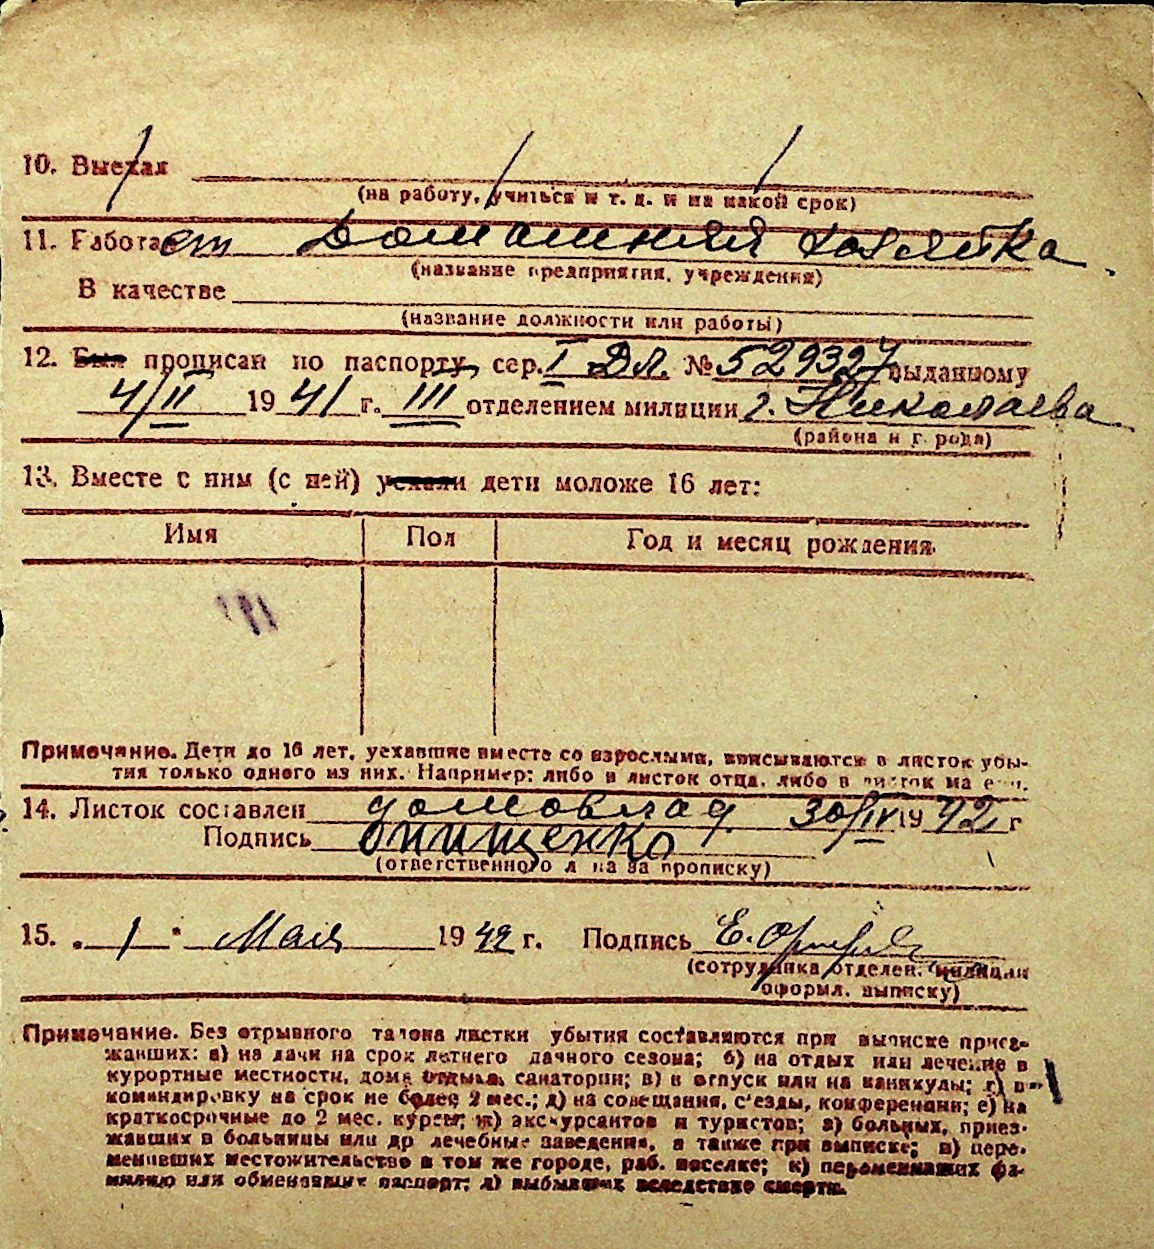 10. Выехал
(на работу, учиться и т. д. и на какой срок)
11. Работает Домашняя хозяйка.
(название предприятия, учреждения)
В качестве
(название должности или работы)
12. Был прописан по паспорту, сер. I ДЛ. № 529327 выданному
4/II 1941 г. III отделением милиции г. Николаева
(района и города)
13. Вместе с ним (с ней) уехали дети моложе 16 лет:
Имя Пол Год и месяц рождения.
Примечание. Дети до 16 лет, уехавшие вместе со взрослыми, вписываются в листок убы-
тия только одного из них. Например: либо в листок отца, либо в листок матери.
14. Листок составлен домовлад. 30/IV 1942 г
Подпись Онищенко
(ответственного л на за прописку)
15. „1" Мая 1942 г. Подпись Е.
(сотрудника отделен. милиции
оформл. выписку)
Примечание. Без отрывного талона листки убытия составляются при выписке приез-
жавших: а) на дачи на срок летнего дачного сезона; б) на отдых или лечение в
курортные местности, дома отдыха, санатории; в) в отпуск или на каникулы; г) в
командировку на срок не более 2 мес.; д) на совещания, с'езды, конференции; е) на
краткосрочные до 2 мес. курсы; ж) экскурсантов и туристов; з) больных, приез-
жавших в больницы или др лечебные заведения, а также при выписке; и) пере-
менивших местожительство в том же городе, раб. поселке; к) переменивших фа-
милию или обменявших паспорт; л) выбывших вследствие смерти.